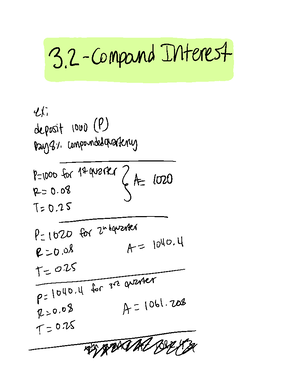 3.2-Compound Interest
ex:
deposit 1000 (P)
Pay 8% compounded quarterly
P=1000 for 1st quarter
R=0.08
A= 1020
T=0.25
P=1020 for 2nd quarter
R=0.08
A= 1040.4
T=0.25
P=1040.4 for 3rd quarter
R=0.08
A=1061.208
T=0.25